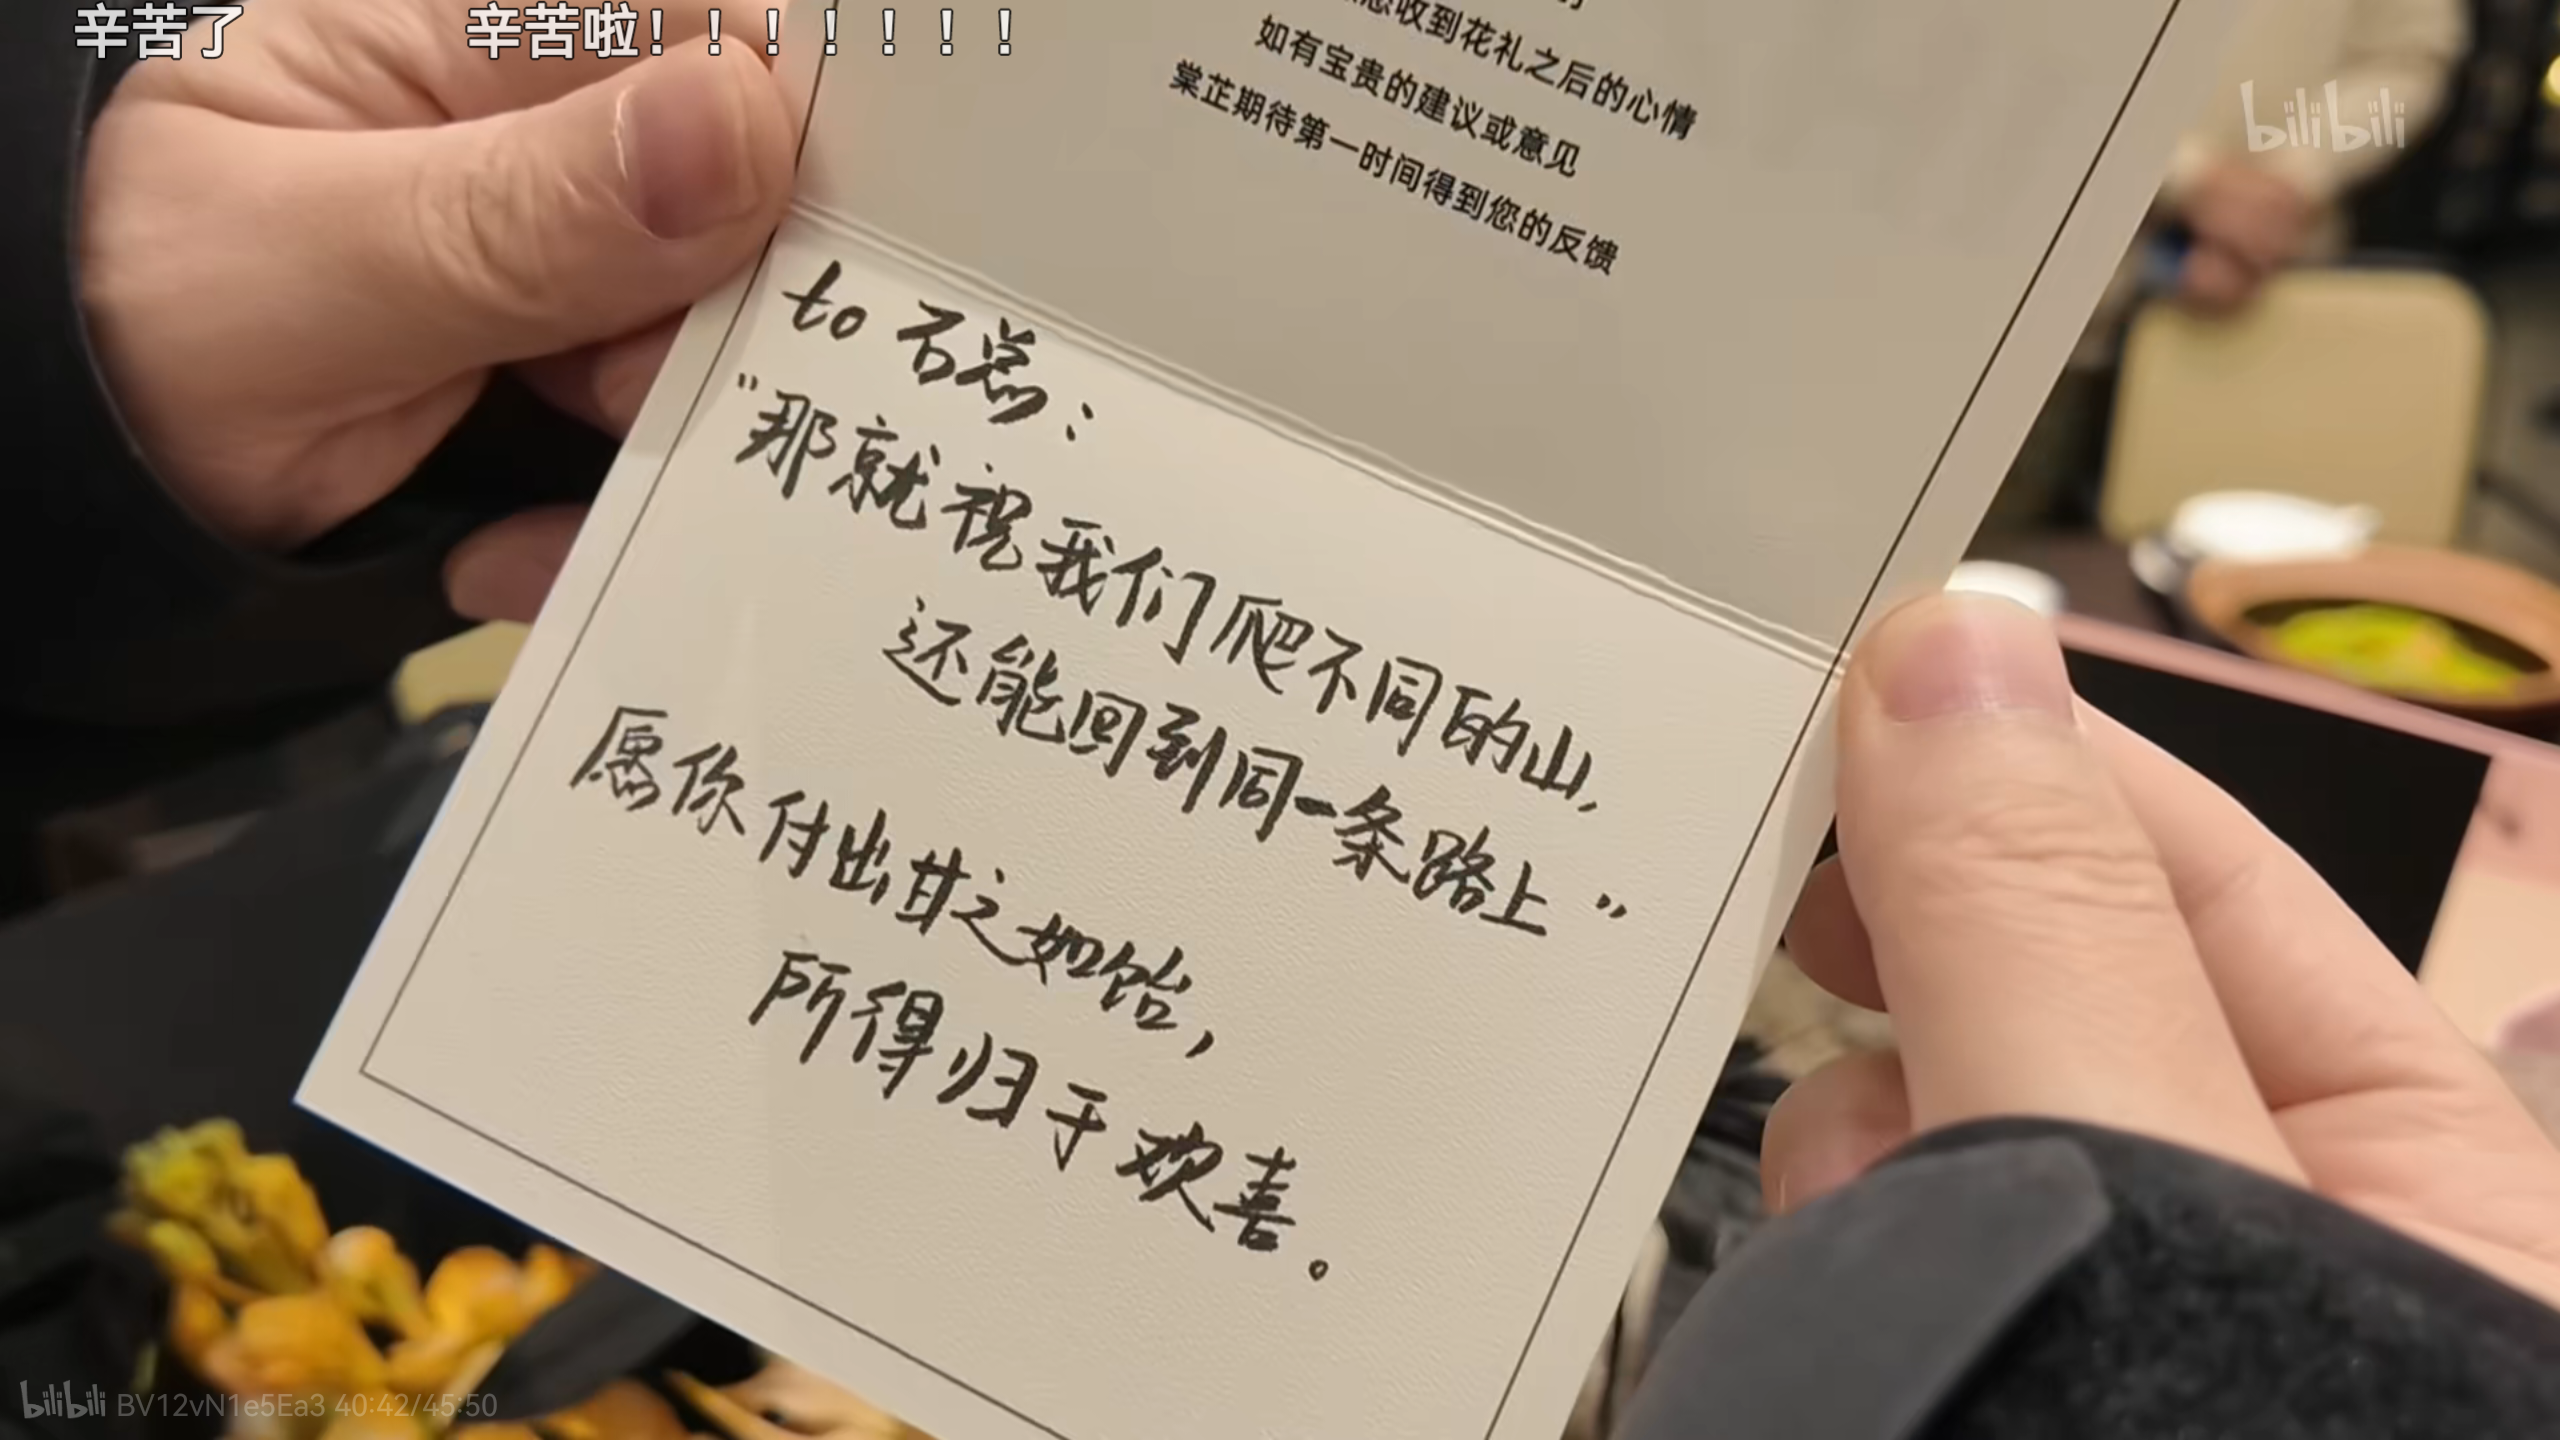 辛苦了 辛苦啦！！！！！！！
您收到花礼之后的心情
如有宝贵的建议或意见
棠芷期待第一时间得到您的反馈
bilibili
to 石总：
“那就祝我们爬不同的山，
还能回到同一条路上”
愿你付出甘之如饴，
所得归于欢喜。
bilibili BV12vN1e5Ea3 40:42/45:50